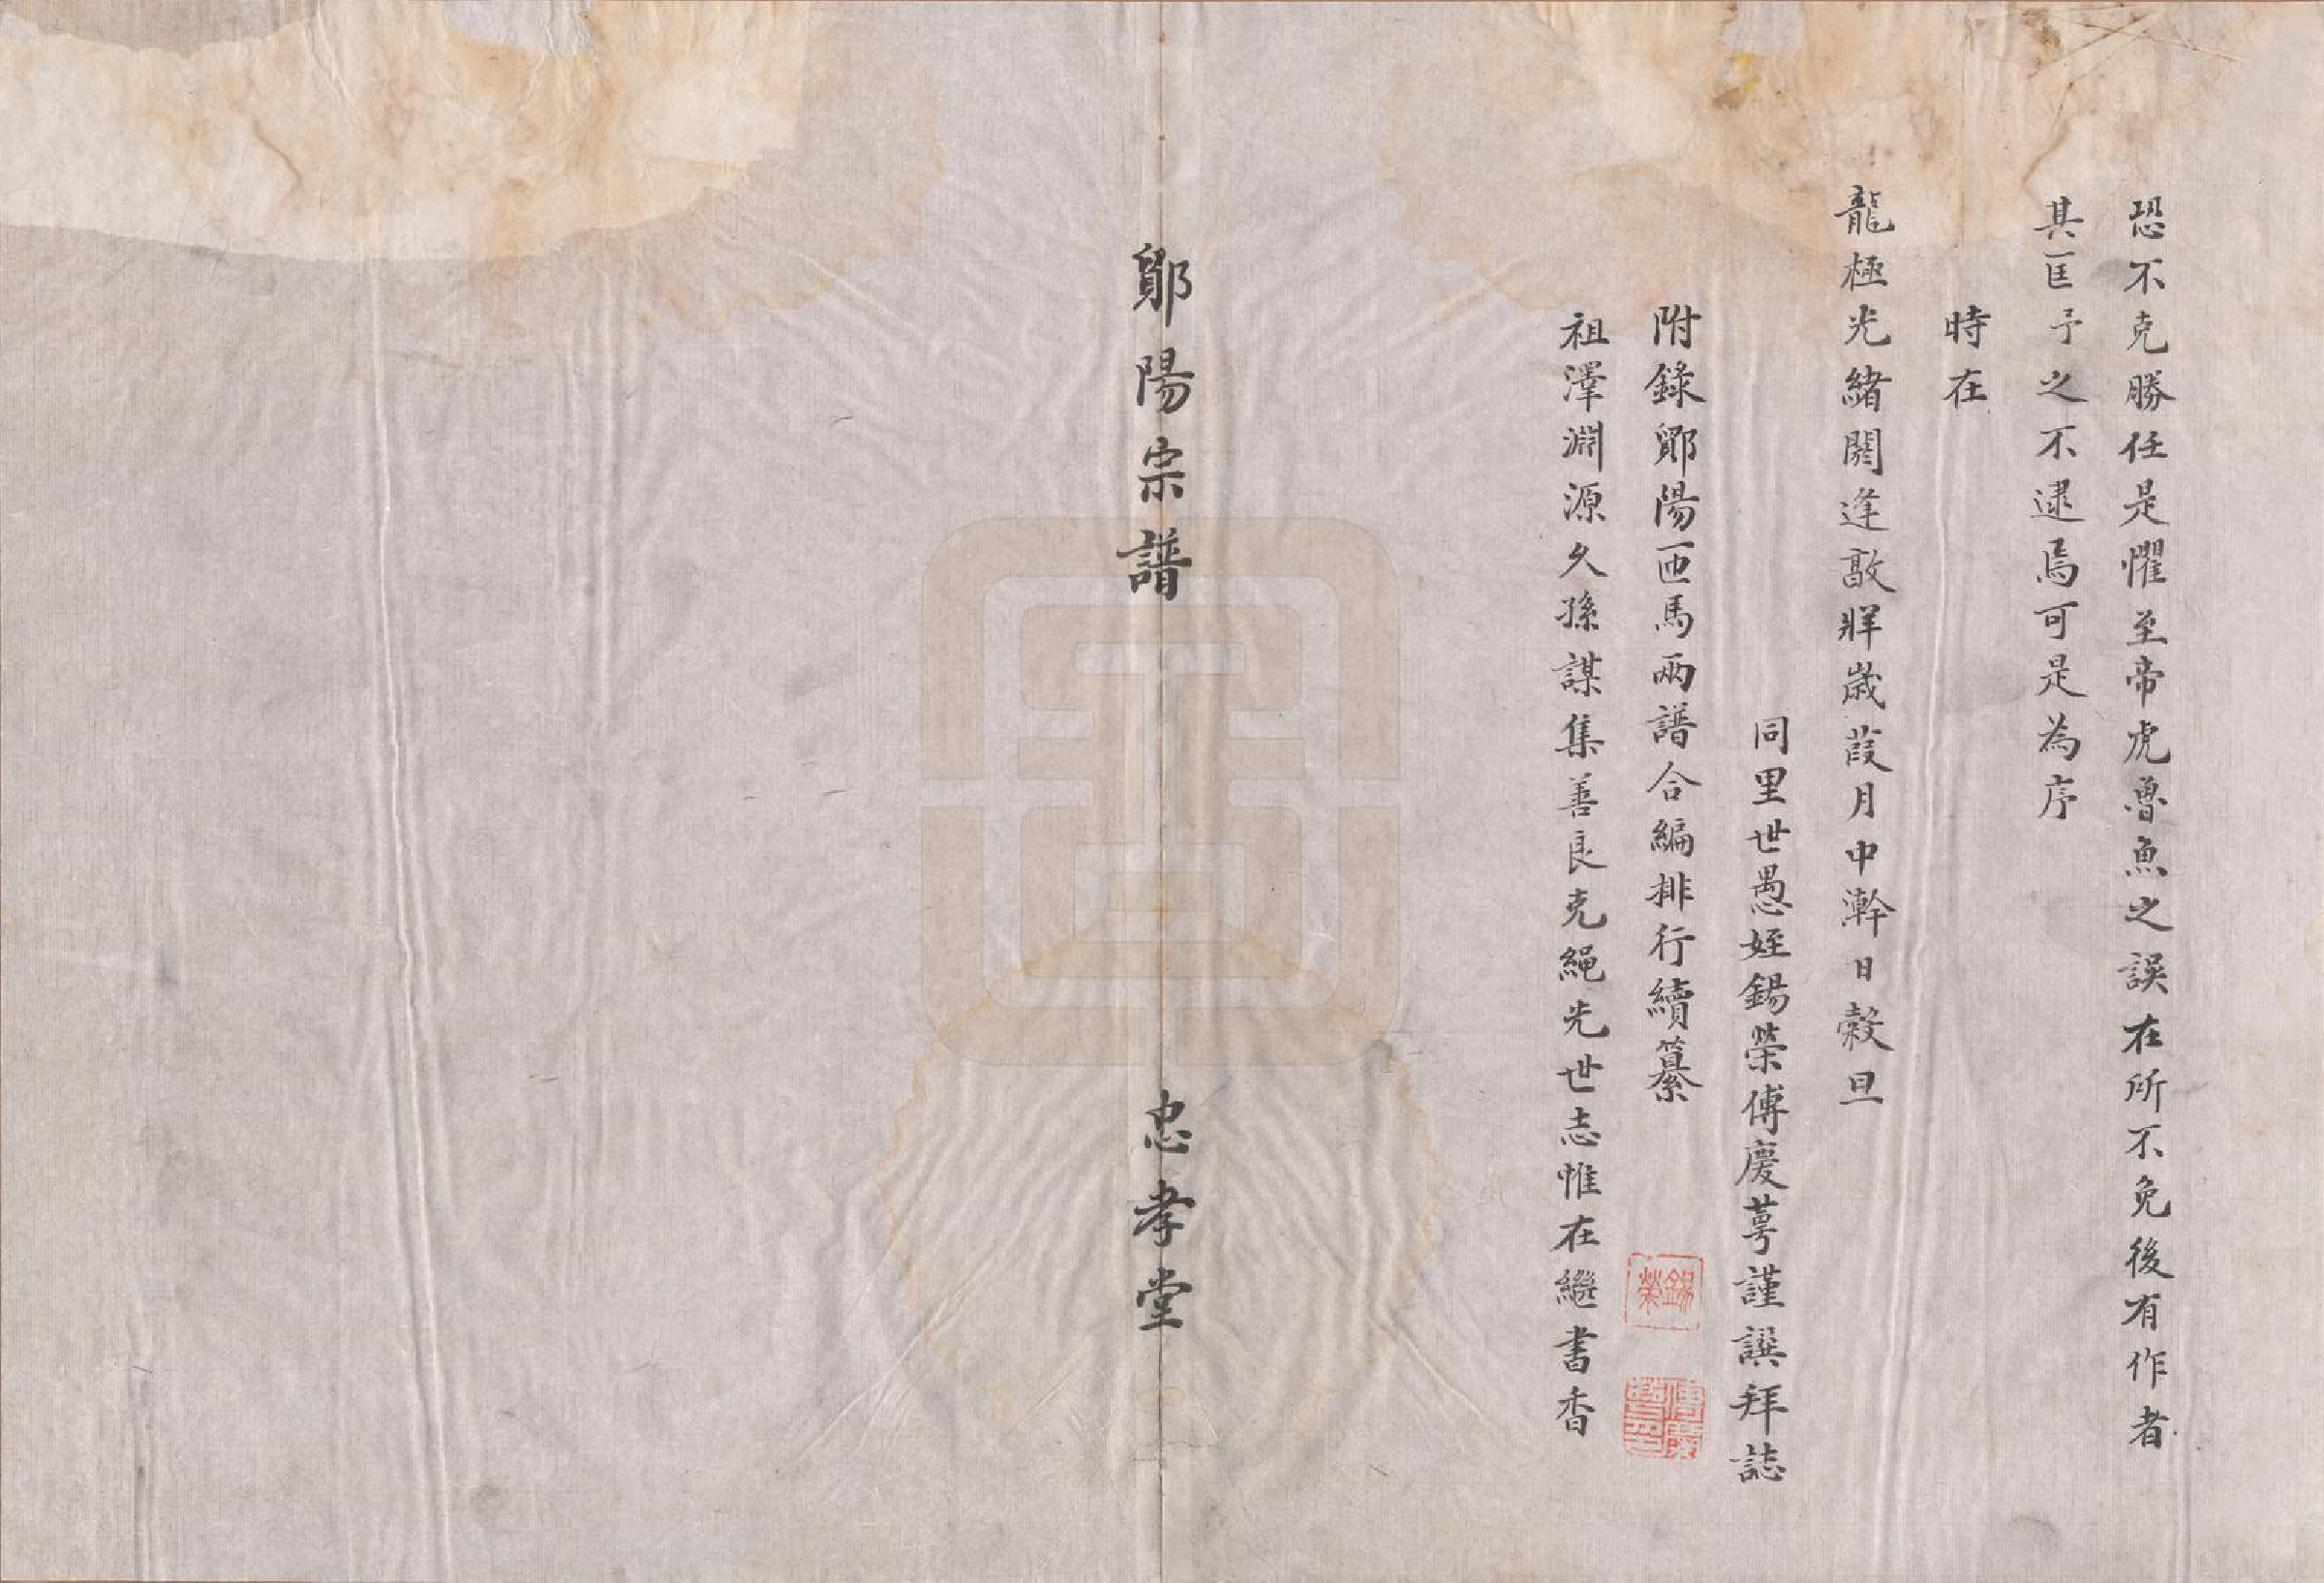 恐不克勝任是懼至帝虎魯魚之誤在所不免後有作者
其匡予之不逮焉可是為序
時在
龍極光緒閼逢敦牂歲葭月中澣日榖旦
同里世愚姪錫榮傅慶萼謹譔拜誌
附錄鄮陽西馬兩譜合編排行續纂
錫榮
祖澤淵源久孫謀集善良克繩先世志惟在繼書香
鄮陽宗譜
忠孝堂